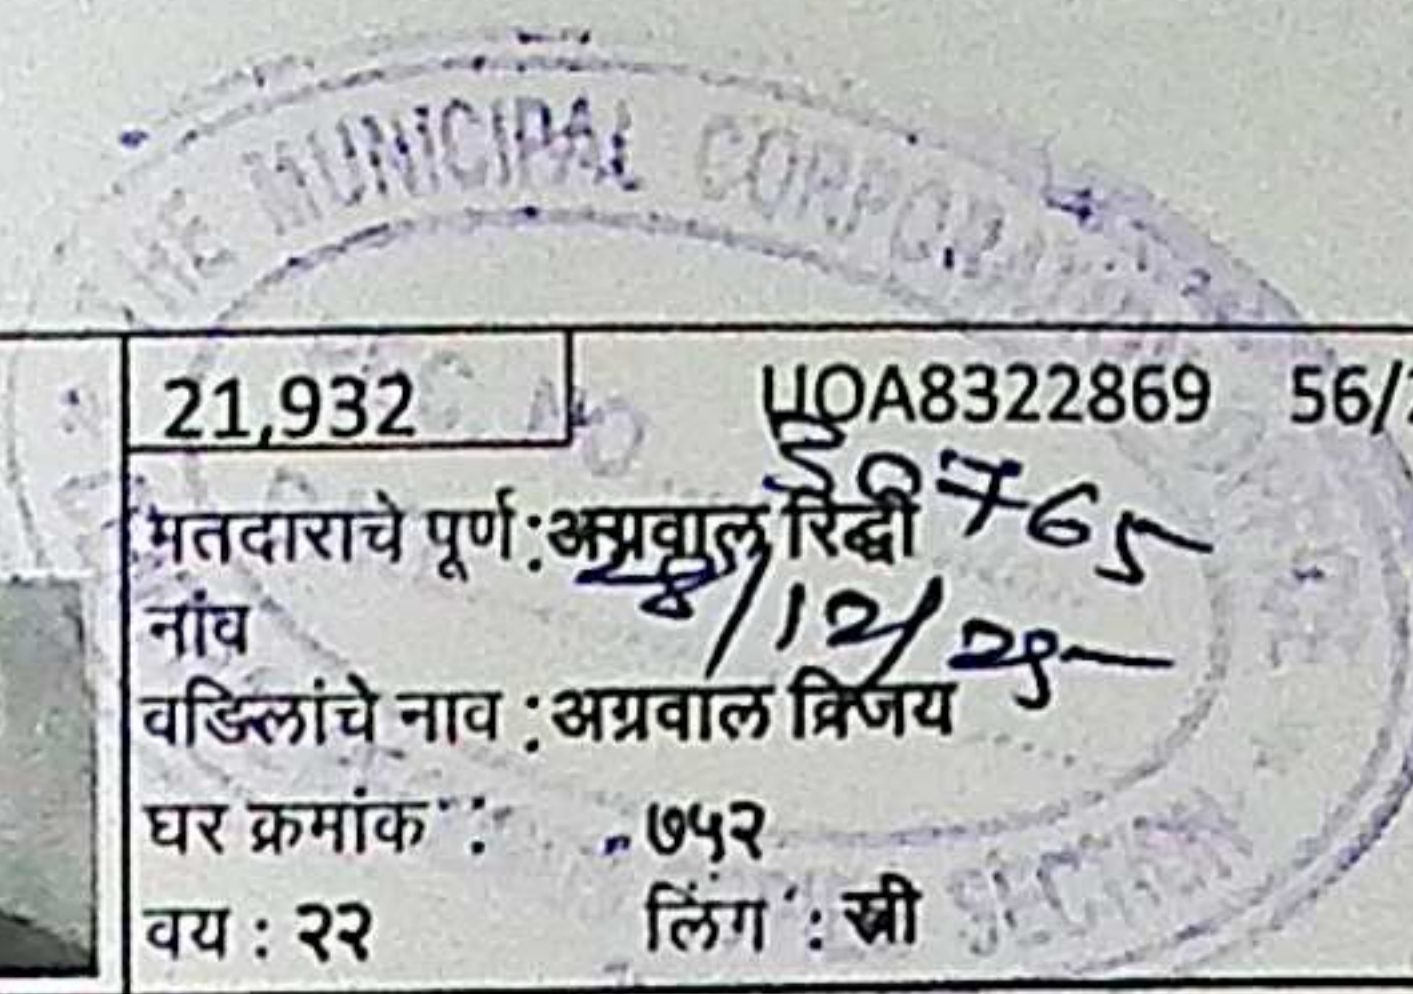 THE MUNICIPAL CORPORATION
21,932 UOA8322869 56/
765
मतदाराचे पूर्ण : अग्रवाल रिद्धी
28/12/25
नांव
वडिलांचे नाव : अग्रवाल विजय
घर क्रमांक : ७५२
वय : २२ लिंग : स्त्री
SECTION